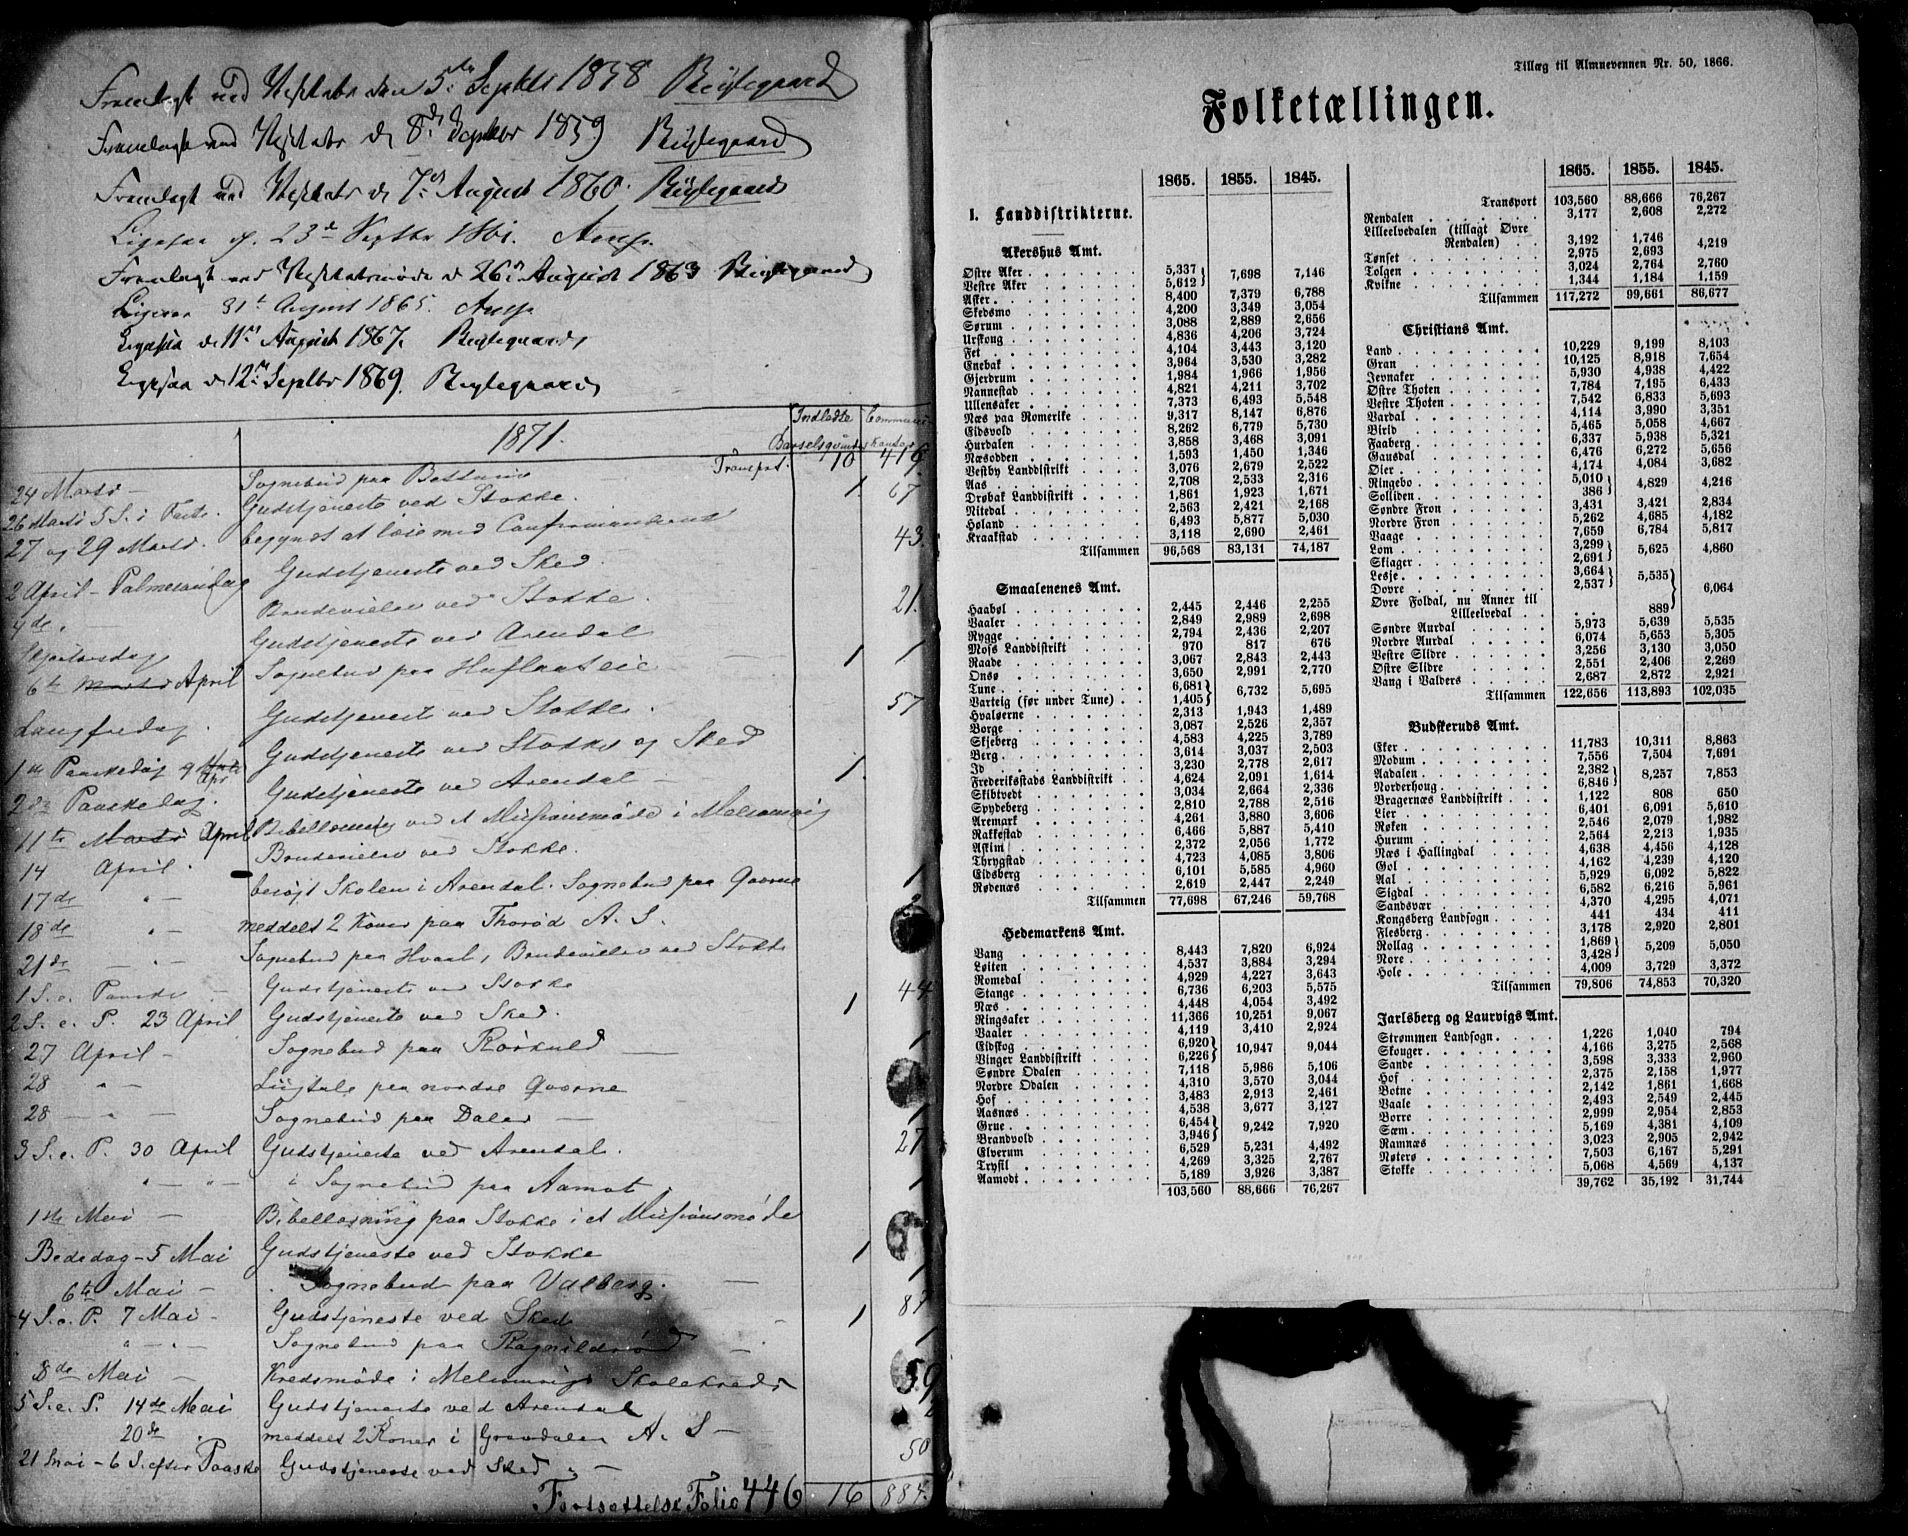 Fremlagt ved Visitats den 5te Septbr 1858 Bugtegaard
Fremlagt ved Visitats d 8de Septbr 1859 Bugtegaard
Fremlagt ved Visitats d 7de August 1860. Bugtegaard
Ligesaa d. 23de Septbr 1861. Arup.
Fremlagt ved Visitatsmøde d 26de August 1863
Ligesaa 31te August 1865. Arup
Ligesaa d 11te August 1867.
Ligesaa d 12te Septbr 1869.
1871.
Indledte Barselqvinder
Transprt. 10 416
24 Marts — Sognebud paa
26 Marts 5 S. i Faste. Gudstjeneste ved Stokke. 1. 67
27 og 29 Marts. begyndt at læse med Confirmanderne 43.
2 April - Palmesøndag Gudstjeneste ved Sked
4de " — Brudevielse ved Stokke. 21.
Skjertorsdag Gudstjeneste ved Arendal
6te Marts April Sognebud paa 1 1
Langfredag. Gudstjeneste ved Stokke. 57
1ste Paaskedag 9 Apr. Gudstjeneste ved Stokke og Sked
2den Paaskedag. Gudstjeneste ved Arendal — 1.
11te Marts April Bibellæsning ved et Missionsmøde i Melsomvig
14 April. Brudevielse ved Stokke.
17de " — besøgt Skolen i Arendal. Sognebud paa 1
18de " — meddelt 2 Koner paa Thorød A. S. 2
21de — " — Sognebud paa Hvaal, Brudevielse ved Stokke
1 S. e. Paaske — Gudstjeneste ved Stokke 44
2 S. e. P. 23 April Gudstjeneste ved Sked. 1
27 April — Sognebud paa 1
28 " — Liigtale paa nordre
28 — " — Sognebud paa Dalen — 1
3 S. e. P. 30 April Gudstjeneste ved Arendal. 27
" — " — i Sognebud paa Aamot. 1
1ste Mai — Bibellæsning paa Stokke i et Missionsmøde
Bededag - 5 Mai Gudstjeneste ved Stokke 1
6te Mai — Sognebud paa Valberg. — 1
4 S. e. P. 7 Mai - Gudstjeneste ved Sked 1 87
" — " — Sognebud paa Ragnildrød — 1
8de Mai — Kredsmøde i Melsomvigs Skolekreds 59
5 S. e. P. 14de Mai Gudstjeneste ved Arendal
20de " meddelt 2 Koner i Gravdalen A. S —
21 Mai - 6 S. efter Paaske Gudstjeneste ved Sked " — 50
Fortsættelse Folio 446 16 884.
Tillæg til Almuevennen Nr. 50, 1866.
Folketællingen.
1865. 1855. 1845.
I. Landdistrikterne.
Akershus Amt.
Østre Aker 5,337 } 7,698 7,146
Vestre Aker 5,612 }
Asker 8,400 7,379 6,788
Skedsmo 4,200 3,349 3,054
Sørum 3,088 2,889 2,656
Urskoug 4,836 4,206 3,724
Fet 4,104 3,443 3,120
Enebak 3,964 3,530 3,282
Gjerdrum 1,984 1,966 1,956
Nannestad 4,821 4,211 3,702
Ullensaker 7,373 6,493 5,548
Næs paa Romerike 9,317 8,147 6,876
Eidsvold 8,262 6,779 5,730
Hurdalen 3,858 3,468 3,091
Næsodden 1,593 1,450 1,346
Vestby Landdistrikt 3,076 2,679 2,522
Aas 2,708 2,533 2,316
Drøbak Landdistrikt 1,861 1,923 1,671
Nitedal 2,563 2,421 2,168
Høland 6,493 5,877 5,030
Kraakstad 3,118 2,690 2,461
Tilsammen 96,568 83,131 74,187
Smaalenenes Amt.
Haabøl 2,445 2,446 2,255
Vaaler 2,849 2,989 2,698
Rygge 2,794 2,436 2,207
Moss Landdistrikt 970 817 676
Raade 3,067 2,843 2,443
Onsø 3,650 2,991 2,770
Tune 6,681 } 6,732 5,695
Varteig (før under Tune) 1,405 }
Hvaløerne 2,313 1,943 1,489
Borge 3,087 2,526 2,357
Skjeberg 4,583 4,225 3,789
Berg 3,614 3,037 2,503
Id 3,230 2,778 2,617
Frederiksstads Landdistrikt 4,624 2,091 1,614
Skibtvedt 3,034 2,664 2,336
Spydeberg 2,810 2,788 2,516
Aremark 4,261 3,880 3,606
Rakkestad 6,466 5,887 5,410
Askim 2,372 2,056 1,772
Thrygstad 4,723 4,085 3,806
Eidsberg 6,101 5,585 4,960
Rødenæs 2,619 2,447 2,249
Tilsammen 77,698 67,246 59,768
Hedemarkens Amt.
Vang 8,443 7,820 6,924
Løiten 4,537 3,884 3,294
Romedal 4,929 4,227 3,643
Stange 6,736 6,203 5,575
Næs 4,448 4,054 3,492
Ringsaker 11,366 10,251 9,067
Vaaler 4,119 3,410 2,924
Eidskog 6,920 } 10,947 9,044
Vinger Landdistrikt 6,226 }
Søndre Odalen 7,118 5,986 5,106
Nordre Odalen 4,310 3,570 3,044
Hof 3,483 2,913 2,461
Aasnæs 4,538 3,677 3,127
Grue 6,454 } 9,242 7,920
Brandvold 3,946 }
Elverum 6,529 5,231 4,492
Trysil 4,269 3,325 2,767
Aamodt 5,189 3,926 3,387
103,560 88,666 76,267
1865. 1855. 1845.
Transport 103,560 88,666 76,267
Rendalen 3,177 2,608 2,272
Lilleelvedalen (tillagt Øvre
Rendalen) 3,192 1,746 } 4,219
Tønset 2,975 2,693
Tolgen 3,024 2,764 2,760
Kvikne 1,344 1,184 1,159
Tilsammen 117,272 99,661 86,677
Christians Amt.
Land 10,229 9,199 8,103
Gran 10,125 8,918 7,654
Jevnaker 5,930 4,938 4,422
Østre Thoten 7,784 7,195 6,433
Vestre Thoten 7,542 6,833 5,693
Vardal 4,114 3,990 3,351
Birid 5,465 5,058 4,667
Faaberg 6,337 5,938 5,321
Gausdal 6,476 6,272 5,656
Øier 4,174 4,084 3,682
Ringebo 5,010 } 4,829 4,216
Solliden 386 }
Søndre Fron 3,431 3,421 2,834
Nordre Fron 5,262 4,685 4,182
Vaage 7,659 6,784 5,817
Lom 3,299 } 5,625 4,860
Skiager 2,691 }
Lesje 3,664 } 5,535 } 6,064
Dovre 2,537 }
Øvre Foldal, nu Anner til
Lilleelvedal . . 889 }
Søndre Aurdal 5,973 5,639 5,535
Nordre Aurdal 6,074 5,653 5,305
Vestre Slidre 3,256 3,130 3,050
Østre Slidre 2,551 2,406 2,269
Vang i Valders 2,687 2,872 2,921
Tilsammen 122,656 113,893 102,035
Budskeruds Amt.
Eker 11,783 10,311 8,863
Modum 7,556 7,504 7,691
Aadalen 2,382 } 8,257 7,853
Norderhoug 6,846 }
Bragernæs Landdistrikt 1,122 808 650
Lier 6,401 6,091 5,610
Røken 2,546 2,079 1,982
Hurum 2,564 2,213 1,935
Næs i Hallingdal 4,638 4,456 4,128
Gol 4,162 4,239 4,120
Aal 5,929 6,092 5,822
Sigdal 6,582 6,216 5,961
Sandsvær 4,370 4,295 4,071
Kongsberg Landsogn 441 434 411
Flesberg 3,178 2,920 2,801
Rollag 1,869 } 5,209 5,050
Nore 3,428 }
Hole 4,009 3,729 3,372
Tilsammen 79,806 74,853 70,320
Jarlsberg og Laurvigs Amt.
Strømmen Landsogn 1,226 1,040 794
Skouger 4,166 3,275 2,568
Sande 3,598 3,333 2,960
Hof 2,375 2,158 1,977
Botne 2,142 1,861 1,668
Vaale 2,493 2,549 2,445
Borre 2,999 2,954 2,853
Sæm 5,169 4,381 4,109
Ramnæs 3,023 2,905 2,942
Nøterø 7,503 6,167 5,291
Stokke 5,068 4,569 4,137
39,762 35,192 31,744